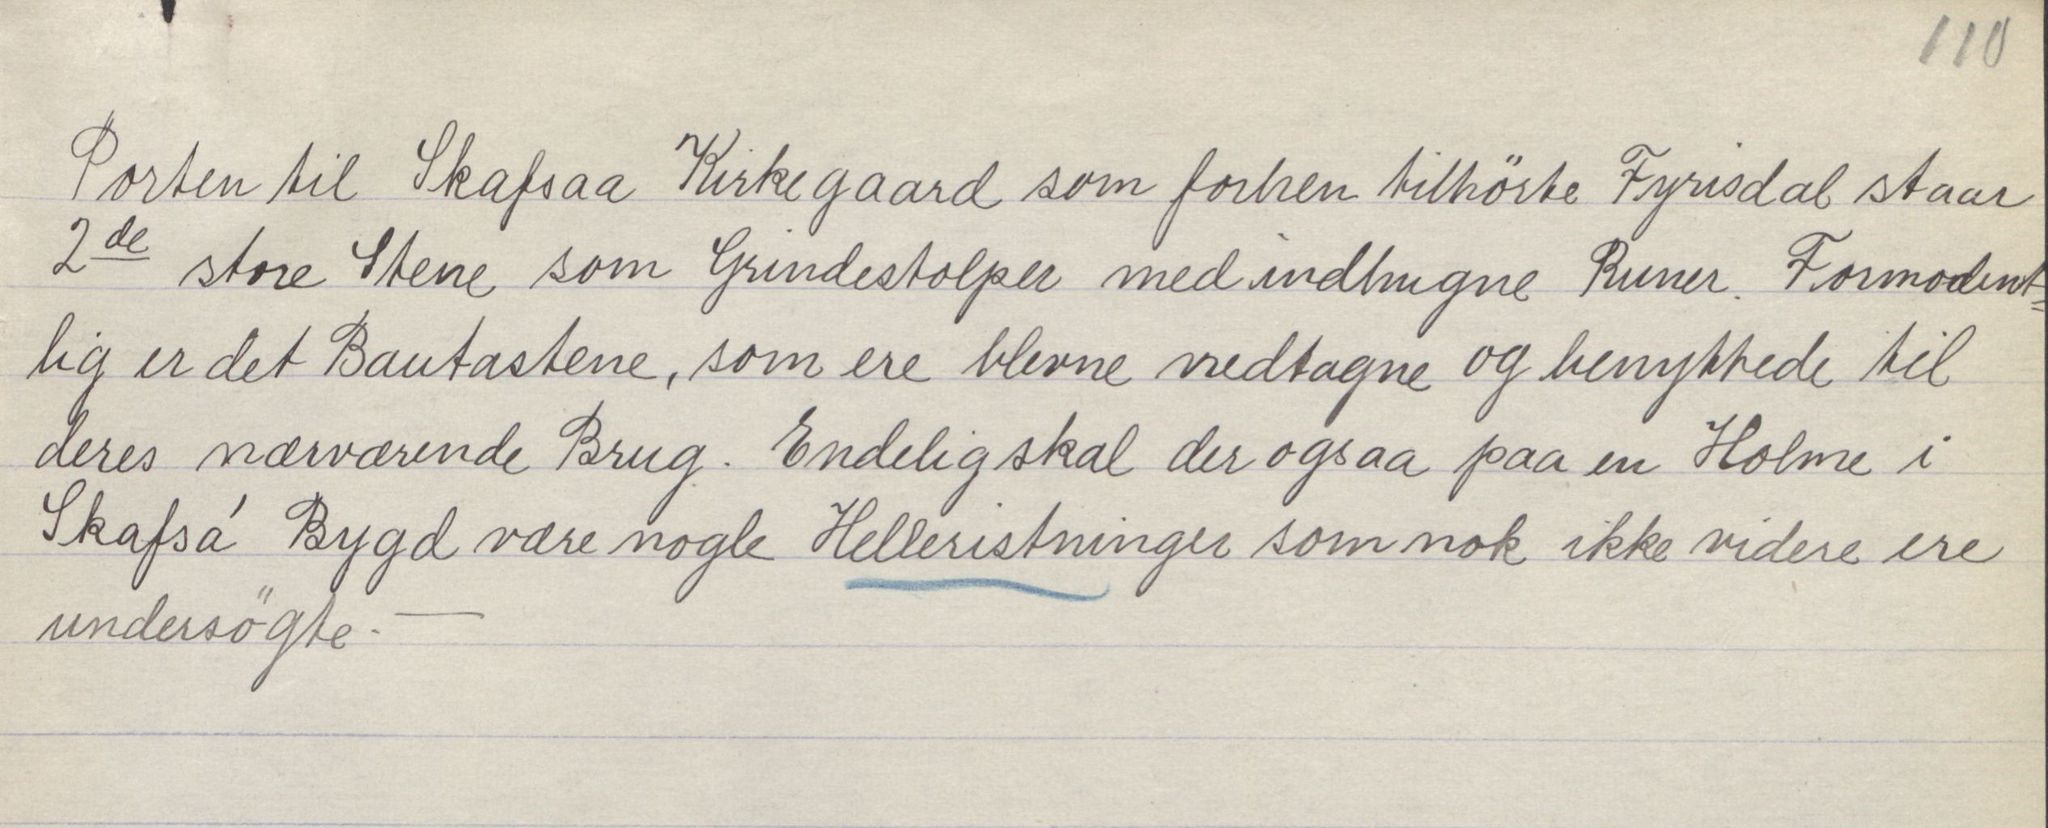 110
Porten til Skafsaa Kirkegaard som forhen tilhörte Fyrisdal staar
2de store Stene som Grindestolper med indhugne Runer. Formodent=
lig er det Bautastene, som ere blevne nedtagne og benyttede til
deres nærværende Brug. Endelig skal der ogsaa paa en Holme i
Skafså Bygd være nogle Helleristninger som nok ikke videre ere
undersögte. —